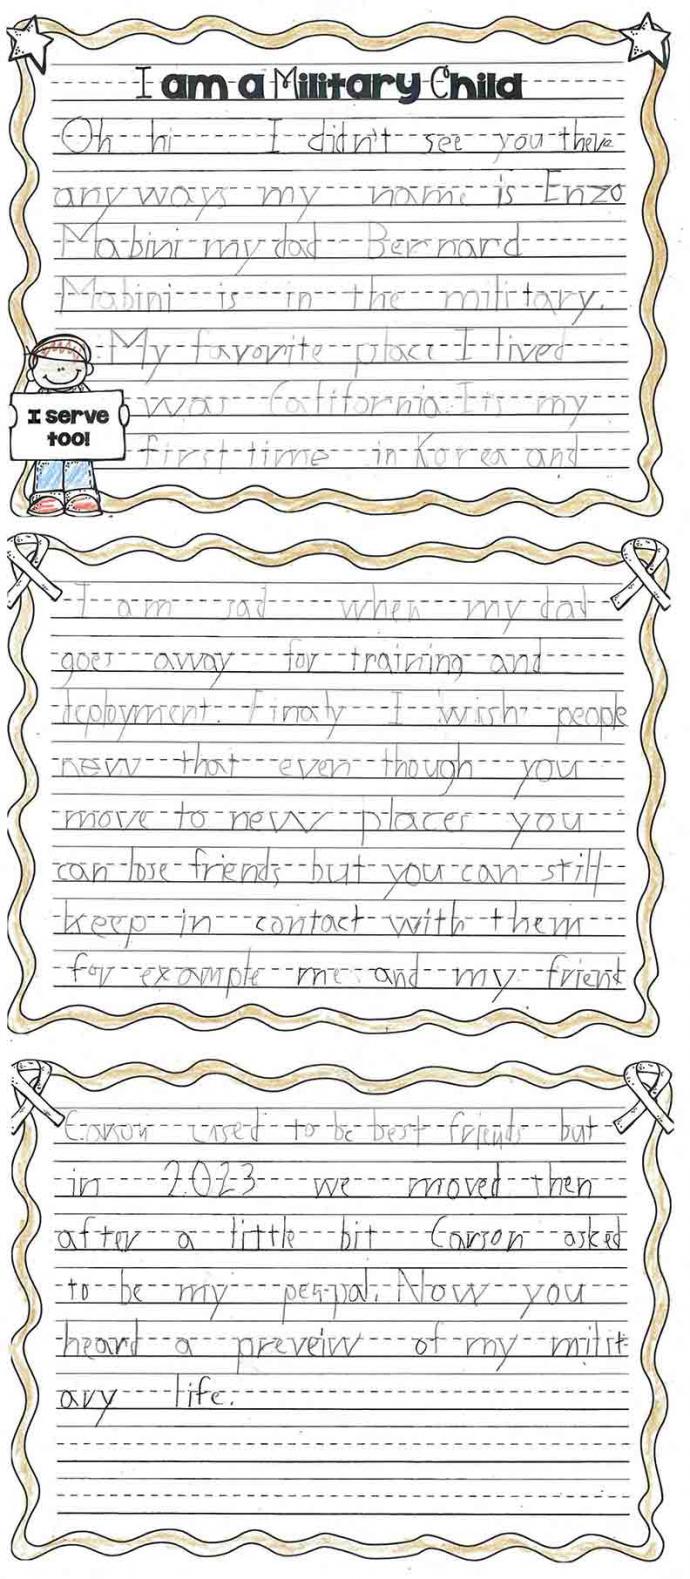 I am a Military Child
Oh hi I didn't see you there
any ways my name is Enzo
Mabini my dad Bernard
Mabini is in the military.
My favorite place I lived
was California. Its my
first time in Korea and
I serve
too!
I am sad when my dad
goes away for training and
deployment. Finaly I wish people
new that even though you
move to new places you
can lose friends but you can still
keep in contact with them
for example me and my friend
Carson used to be best friends but
in 2023 we moved then
after a little bit Carson asked
to be my penpal. Now you
heard a preveiw of my milit
ary life.